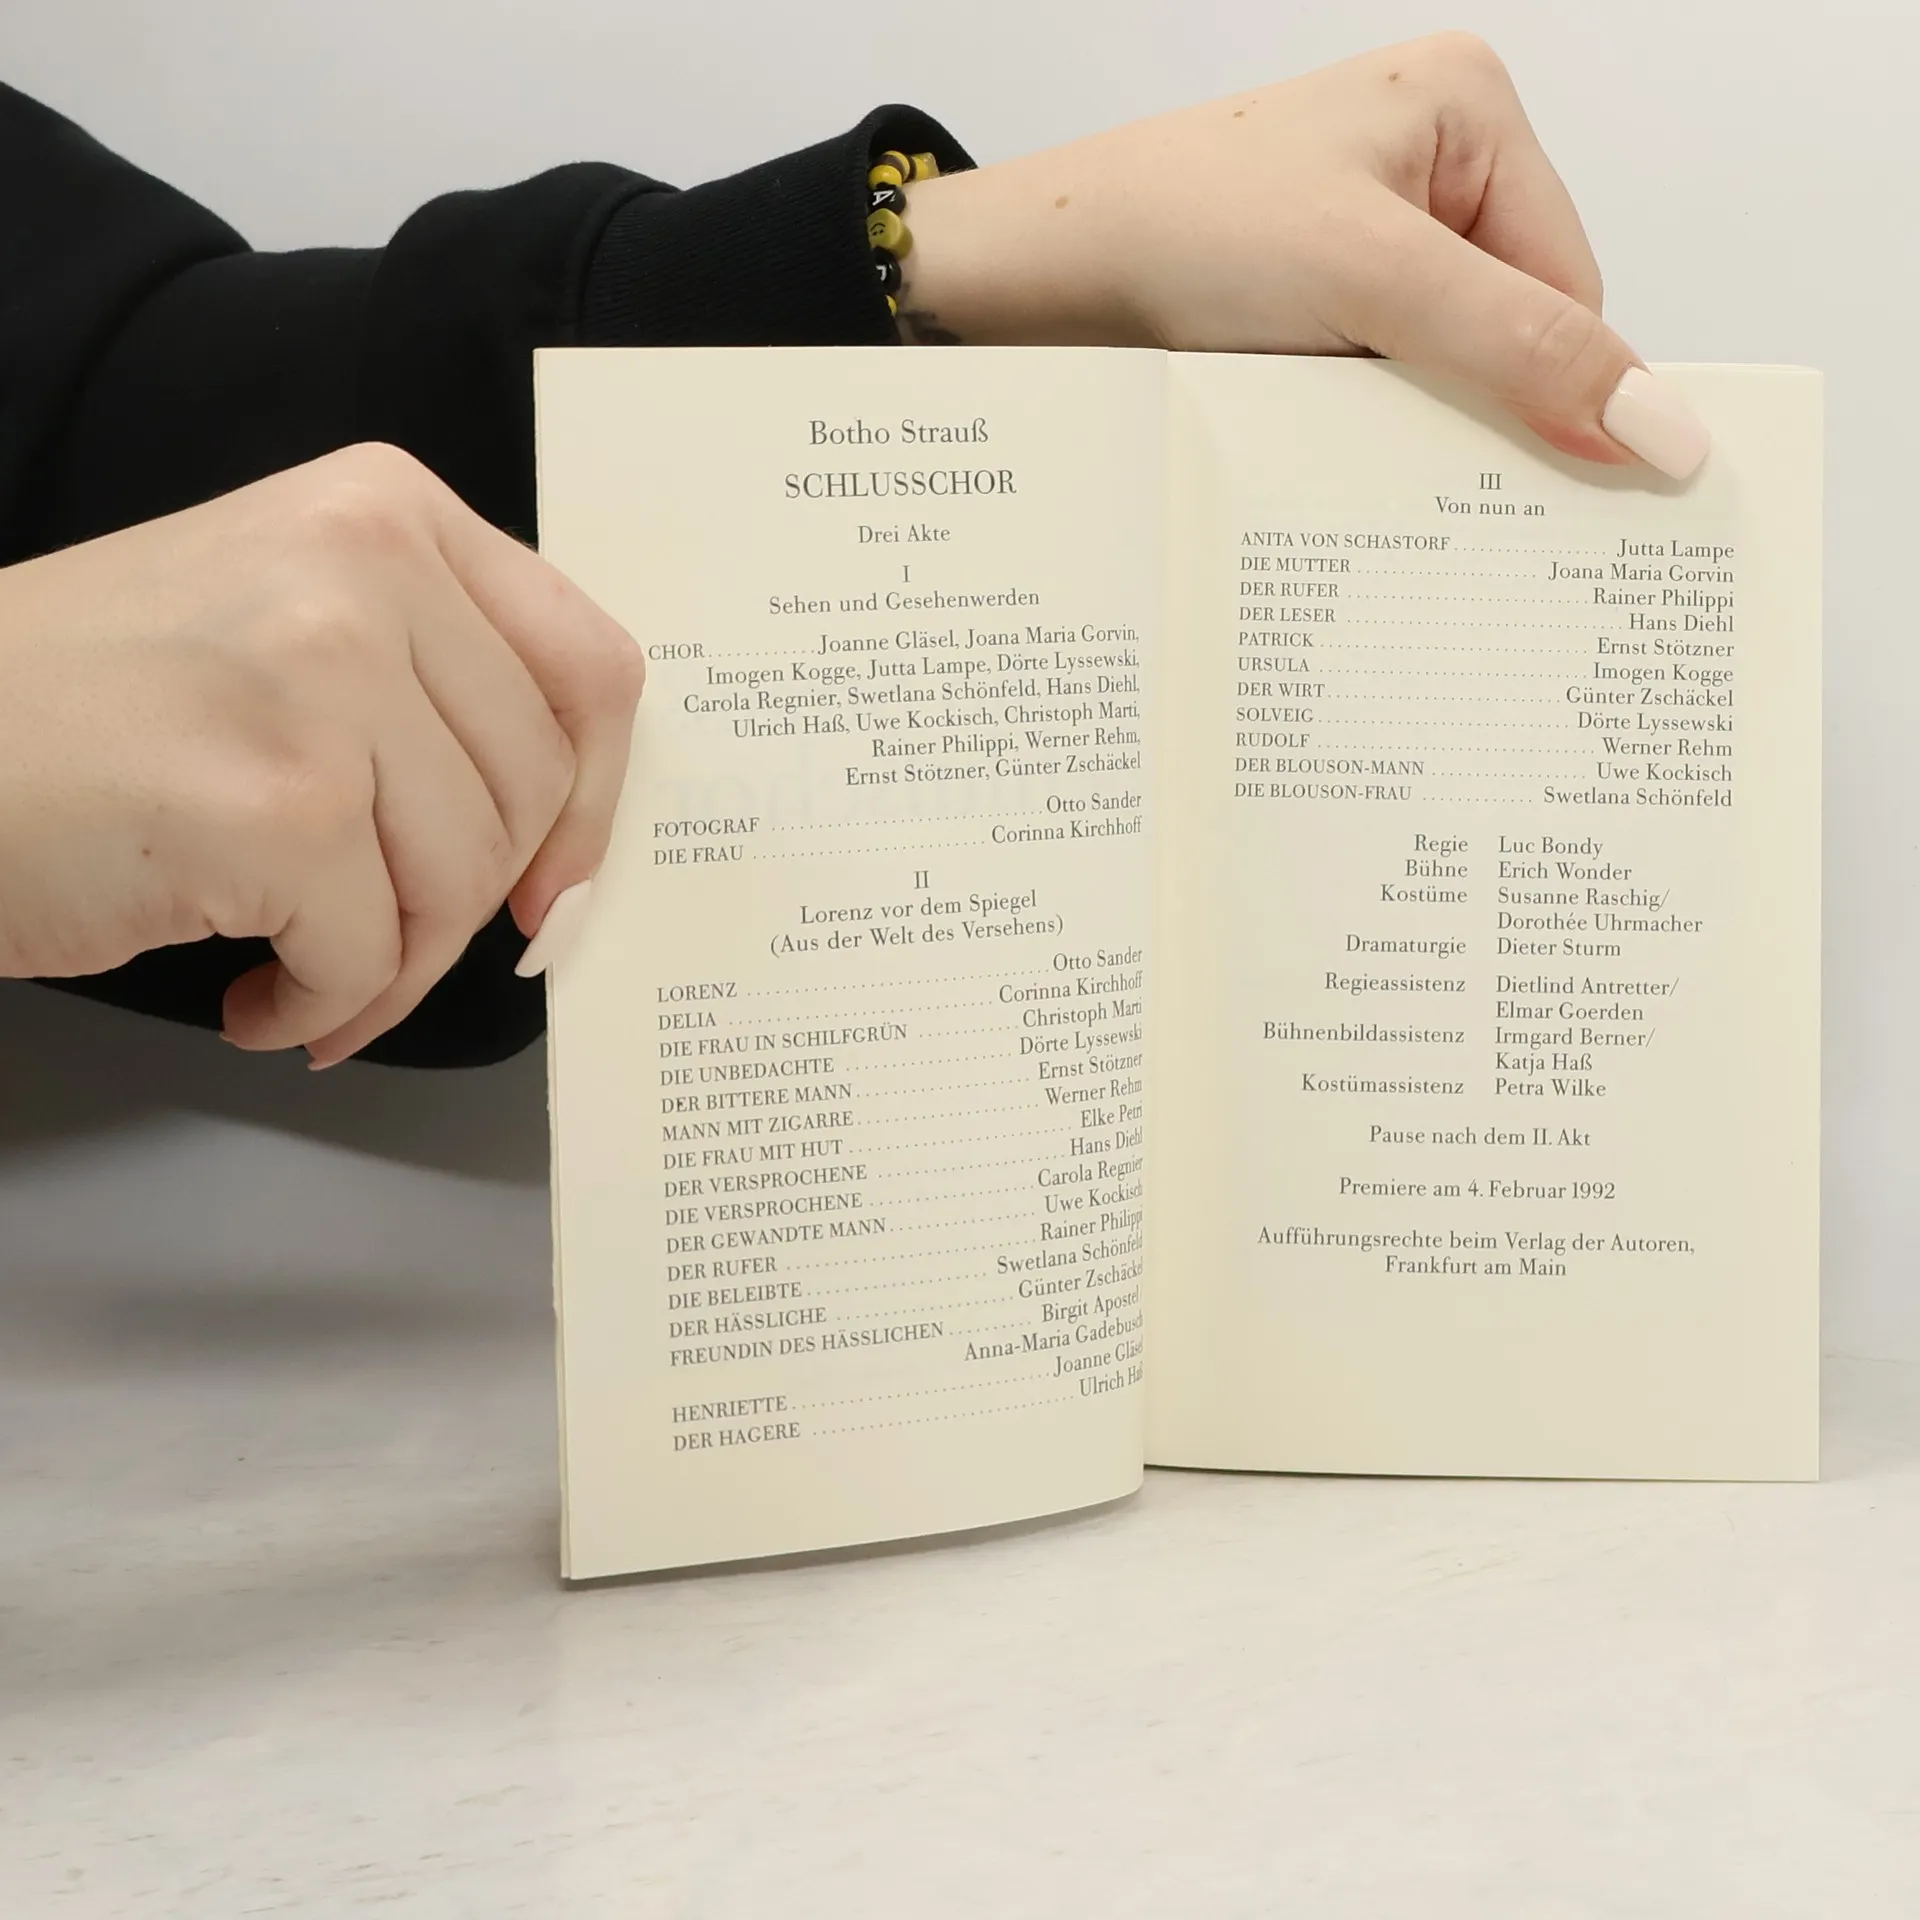 Botho Strauß
SCHLUSSCHOR
Drei Akte
I
Sehen und Gesehenwerden
CHOR............Joanne Gläsel, Joana Maria Gorvin,
Imogen Kogge, Jutta Lampe, Dörte Lyssewski,
Carola Regnier, Swetlana Schönfeld, Hans Diehl,
Ulrich Haß, Uwe Kockisch, Christoph Marti,
Rainer Philippi, Werner Rehm,
Ernst Stötzner, Günter Zschäckel
FOTOGRAF ............ Otto Sander
DIE FRAU ............ Corinna Kirchhoff
II
Lorenz vor dem Spiegel
(Aus der Welt des Versehens)
LORENZ ............ Otto Sander
DELIA ............ Corinna Kirchhoff
DIE FRAU IN SCHILFGRÜN ............ Christoph Marti
DIE UNBEDACHTE ............ Dörte Lyssewski
DER BITTERE MANN ............ Ernst Stötzner
MANN MIT ZIGARRE ............ Werner Rehm
DIE FRAU MIT HUT ............ Elke Petri
DER VERSPROCHENE ............ Hans Diehl
DIE VERSPROCHENE ............ Carola Regnier
DER GEWANDTE MANN ............ Uwe Kockisch
DER RUFER ............ Rainer Philippi
DIE BELEIBTE ............ Swetlana Schönfeld
DER HÄSSLICHE ............ Günter Zschäckel
FREUNDIN DES HÄSSLICHEN .......... Birgit Apostel
Anna-Maria Gadebusch
HENRIETTE ............ Joanne Gläsel
DER HAGERE ............ Ulrich Haß
III
Von nun an
ANITA VON SCHASTORF ............ Jutta Lampe
DIE MUTTER ............ Joana Maria Gorvin
DER RUFER ............ Rainer Philippi
DER LESER ............ Hans Diehl
PATRICK ............ Ernst Stötzner
URSULA ............ Imogen Kogge
DER WIRT ............ Günter Zschäckel
SOLVEIG ............ Dörte Lyssewski
RUDOLF ............ Werner Rehm
DER BLOUSON-MANN ............ Uwe Kockisch
DIE BLOUSON-FRAU ............ Swetlana Schönfeld
Regie Luc Bondy
Bühne Erich Wonder
Kostüme Susanne Raschig/
Dorothée Uhrmacher
Dramaturgie Dieter Sturm
Regieassistenz Dietlind Antretter/
Elmar Goerden
Bühnenbildassistenz Irmgard Berner/
Katja Haß
Kostümassistenz Petra Wilke
Pause nach dem II. Akt
Premiere am 4. Februar 1992
Aufführungsrechte beim Verlag der Autoren,
Frankfurt am Main